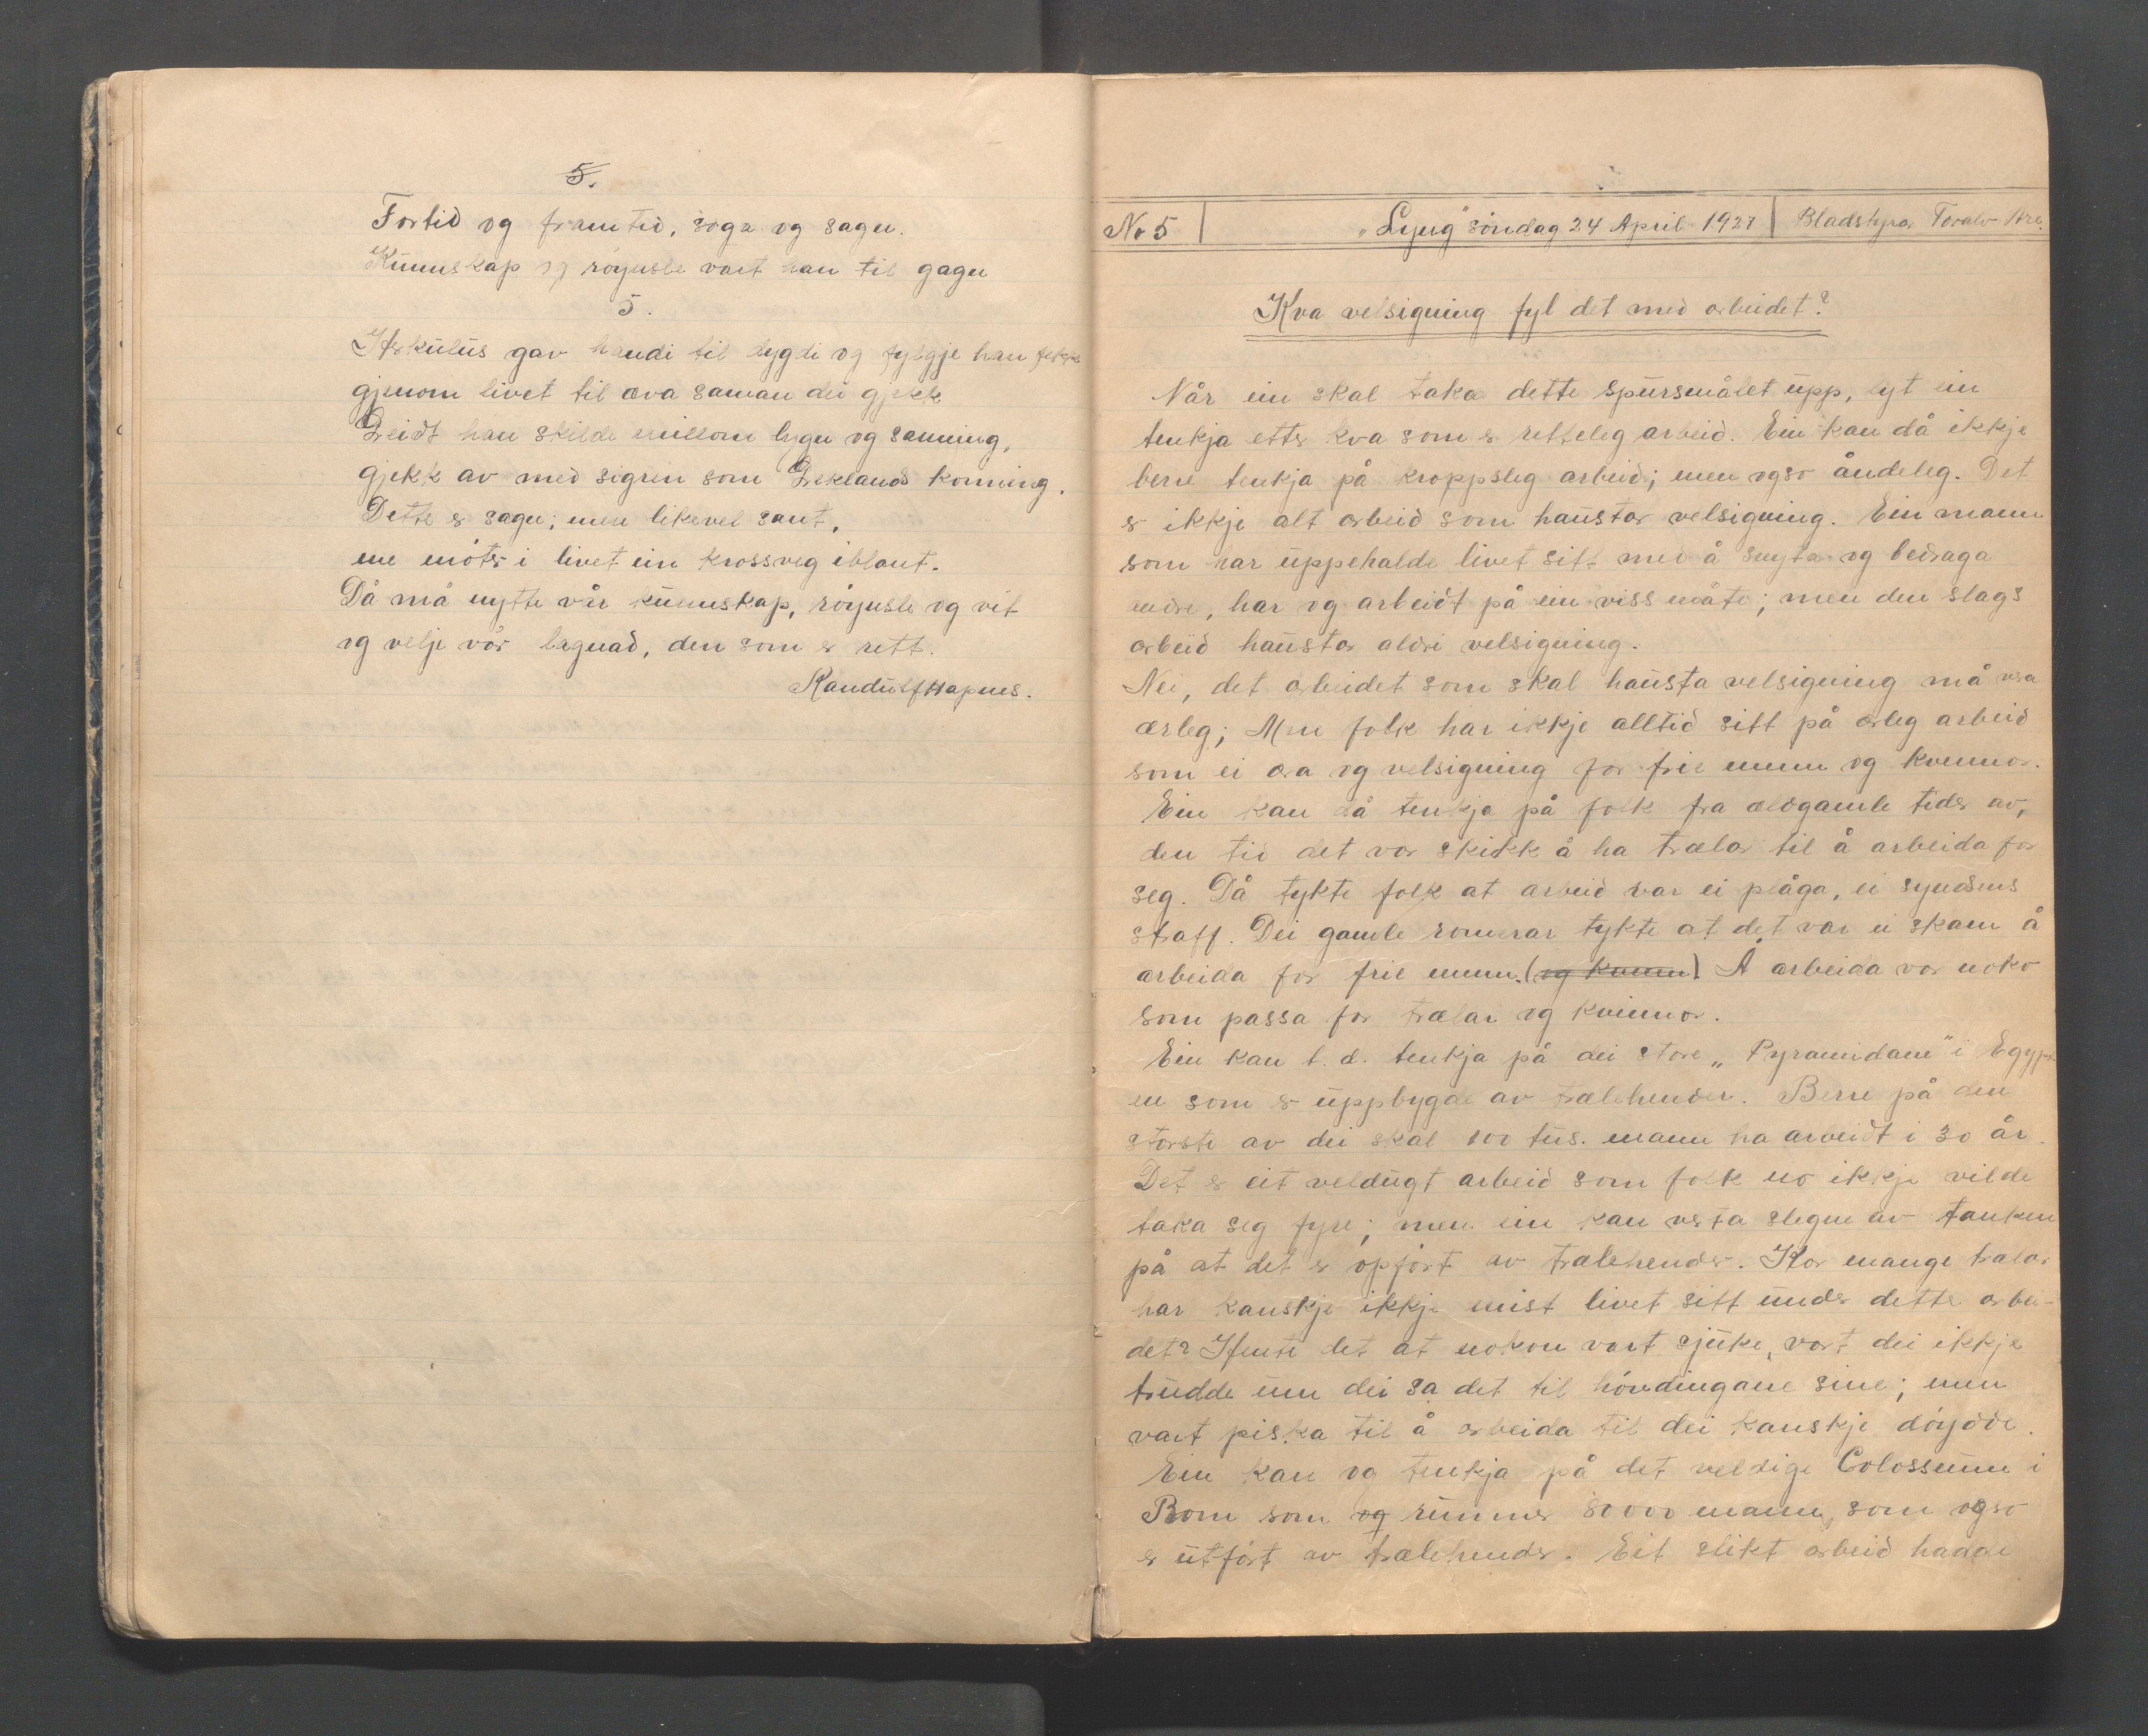 5.
Fortid og framtid, soga og sagn.
Kunnskap og röynsle vart han til gagn
5.
Herkulus gav handi til dygdi og fylgje han fekk
gjenom livet til æva saman dei gjekk
Leidt han skilde millom lygn og sanning,
gjekk av med sigren som Greklands konning.
Dette er sagn; men likevel sant,
me möter i livet ein krossveg iblant.
Då må nytte vår kunnskap, röynsle og vit
og velje vår lagnad, den som er rett.
Randulf Hapnes.
No 5 "Lyng" söndag 24 April 1927 Bladstyrar Toralv
Kva velsigning fyl det med arbeidet?
Når ein skal taka dette spursmålet upp, lyt ein
tenkja etter kva som er retteleg arbeid. Ein kan då ikkje
berre tenkja på kroppsleg arbeid; men ogso åndeleg. Det
er ikkje alt arbeid som haustar velsigning. Ein mann
som har uppehalde livet sitt med å snyta og bedraga
andre, har og arbeidt på ein viss måte; men den slags
arbeid haustar aldri velsigning.
Nei, det arbeidet som skal hausta velsigning må vera
ærleg; Men folk har ikkje alltid sitt på ærleg arbeid
som ei æra og velsigning for frie menn og kvinnor.
Ein kan då tenkja på folk fra ældgamle tider av,
den tid det var skikk å ha trælar til å arbeida for
seg. Då tykte folk at arbeid var ei plåga, ei syndens
straff. Dei gamle romerar tykte at det var ei skam å
arbeida for frie menn. (og kvinn) Å arbeida var noko
som passa for trælar og kvinnor.
Ein kan t. d. tenkja på dei store "Pyramidane" i Egypt-
en som er uppbygde av trælehender. Berre på den
störste av dei skal 100 tus. mann ha arbeidt i 30 år.
Det er eit veldugt arbeid som folk no ikkje vilde
taka seg fyre; men ein kan verta slegne av tanken
på at det er opfört av trælehender. Kor mange trælar
har kanskje ikkje mist livet sitt under dette arbei-
det? Hente det at nokon vart sjuke, vart dei ikkje
trudde um dei sa det til hövdingane sine; men
vart piska til å arbeida til dei kanskje döydde.
Ein kan og tenkja på det veldige Colosseum i
Rom som og rummer 80000 mann, som ogso
er utfört av trælehender. Eit slikt arbeid hadde